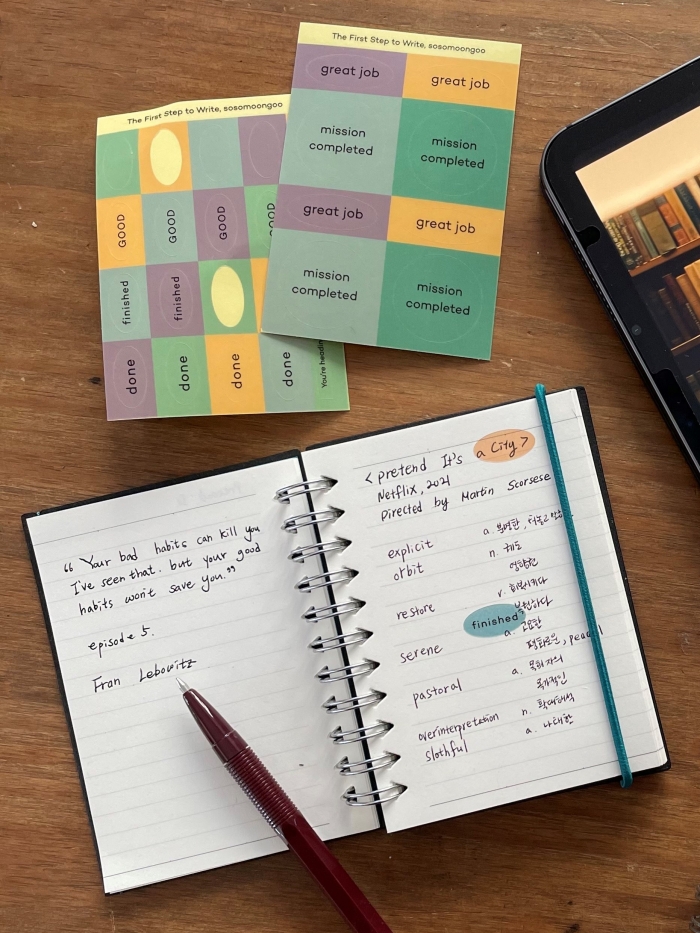 The First Step to Write, sosomoongoo
great job
great job
mission
completed
mission
completed
great job
great job
mission
completed
mission
completed
The First Step to Write, sosomoongoo
GOOD
GOOD
GOOD
GOOD
finished
finished
done
done
done
done
You're headin
“ Your bad habits can kill you
I've seen that. but your good
habits won't save you.”
episode 5.
Fran Lebowitz
< pretend It's a City >
Netflix, 2021
Directed by Martin Scorsese
explicit a. 분명한,
orbit n. 궤도
영향권
restore v. 회복시키다
복원하다
finished
serene a. 고요한
평화로운, peac l
pastoral a. 목회자의
목가적인
overinterpretation n. 확대해석
slothful a. 나태한